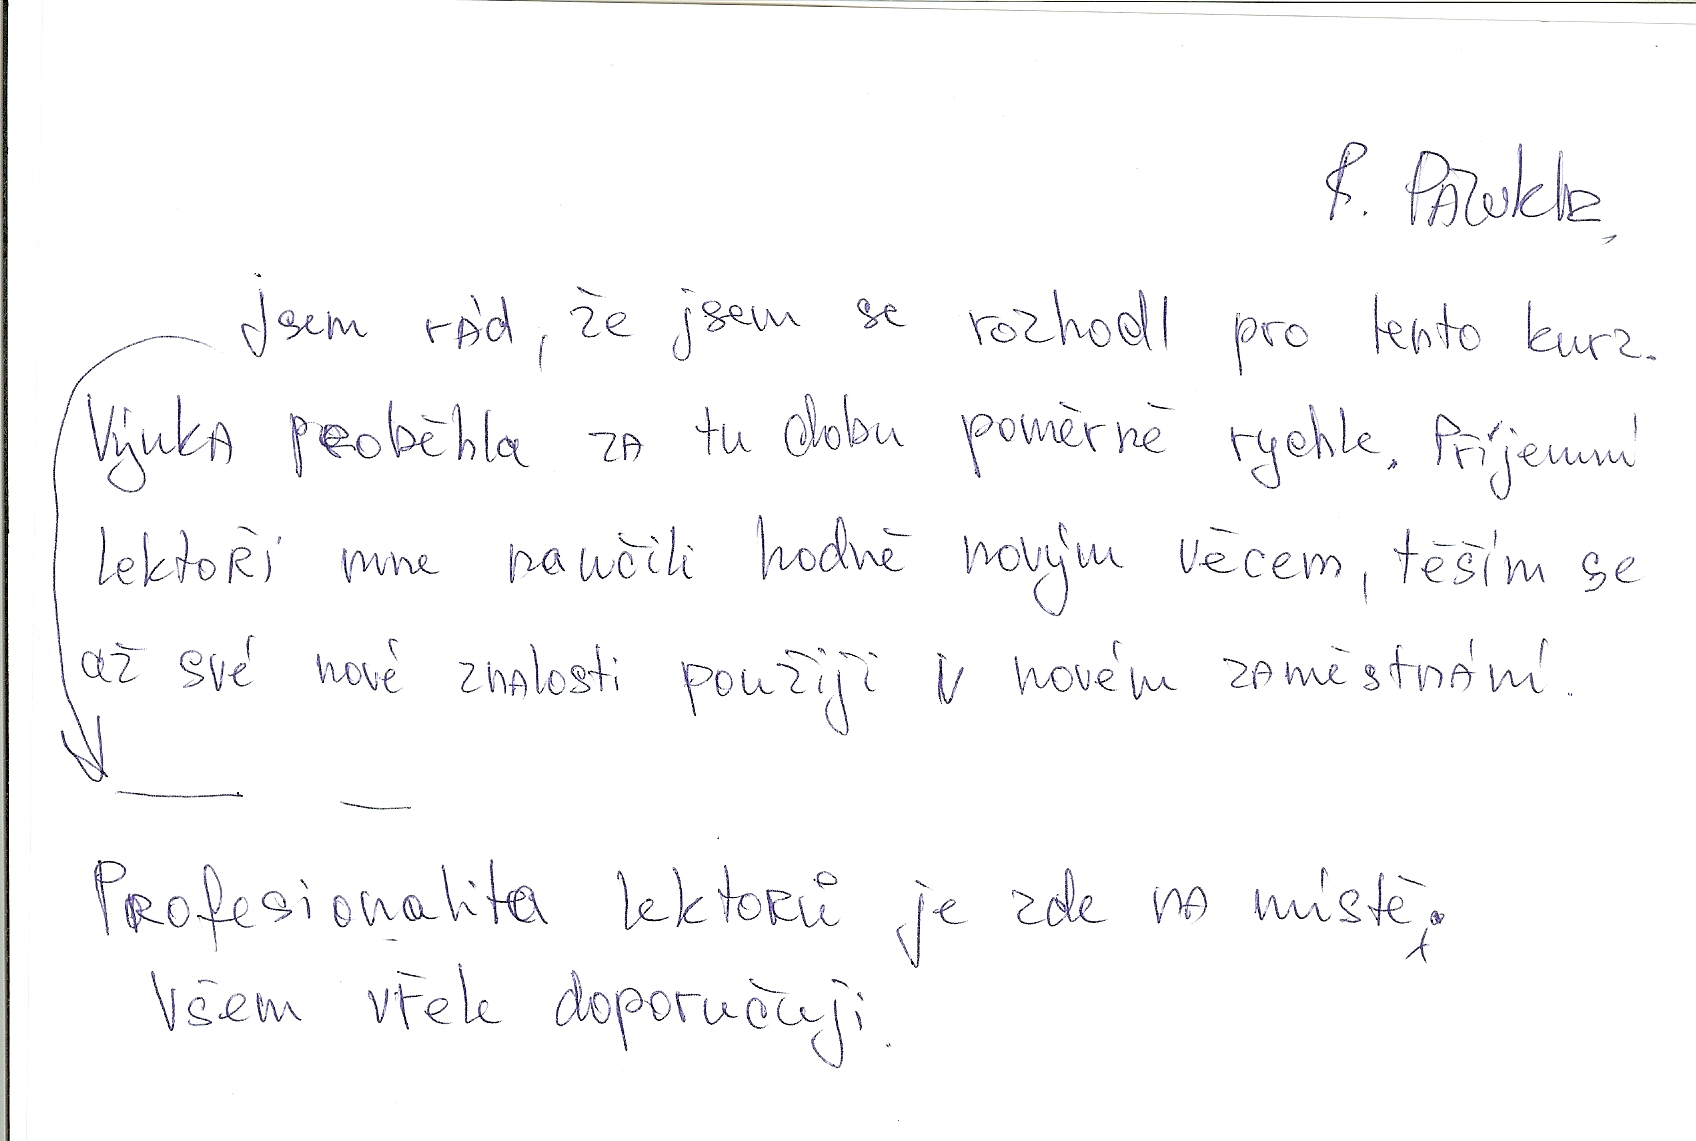 jsem rád, že jsem se rozhodl pro tento kurz.
Výuka proběhla za tu dobu poměrně rychle. Příjemní
lektoři mne naučili hodně novým věcem, těším se
až své nové znalosti použiji v novém zaměstnání.
Profesionalita lektorů je zde na místě,
Všem vřele doporučuji.